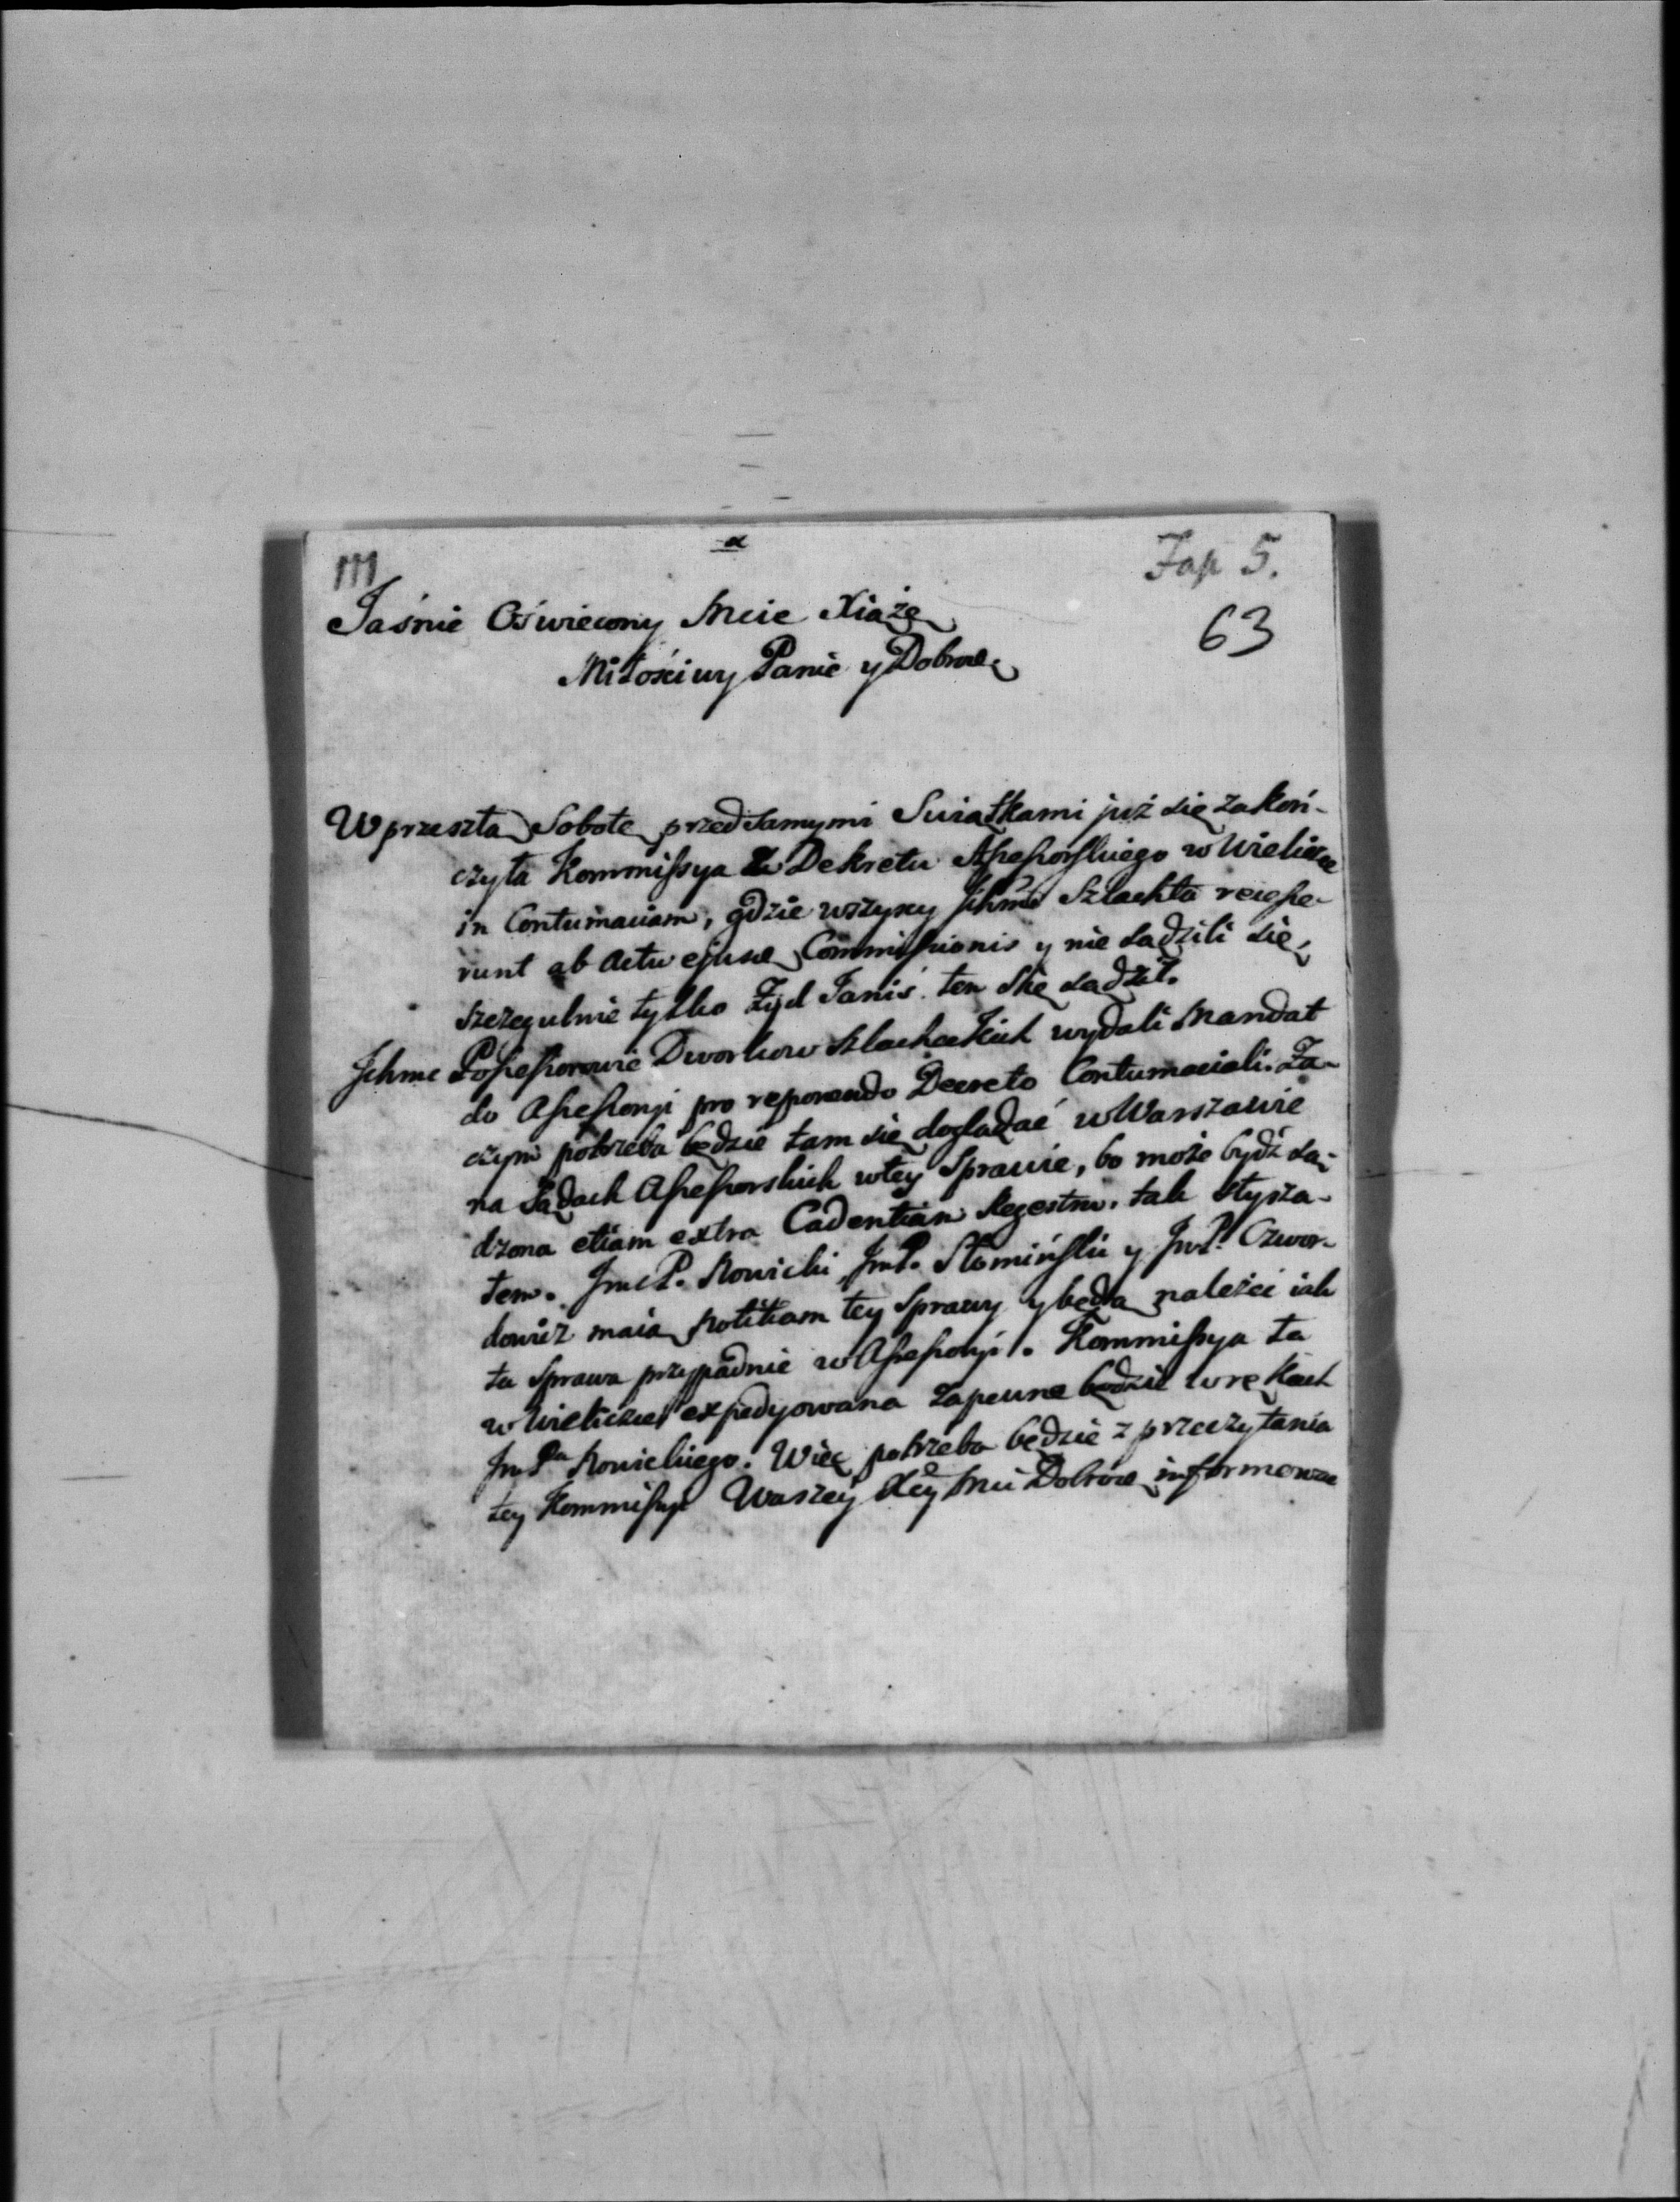 111
Fasc 5.
63
Jaśnie Oświecony Mcie Xiąże
Miłościwy Panie y Dobrodz
W przeszłą Sobotę przed samymi Swiątkami już się zakoń-
czyła Kommissya z Dekretu Assessorskiego w Wieliczce
in Contumaciam, gdzie wszyscy Ichmć Szlachta recesse-
runt ab actu ejusce Commissionis y nie sądzili się,
szczegulnie tylko Żyd Janis ten się sądził.
Ichmc Possessorowie Dworkow szlacheckich wydali Mandat
do Assessoryi pro reponendo Decreto Contumaciali. Za-
czym potrzeba będzie tam się doglądać w Warszawie
na Sądach Assessorskich w tey Sprawie, bo może bydź są-
dzona etiam extra Cadentiam Regestru. tak słysza-
łem. JmcP. Nowicki, JmP. Słomiński y JmP. Czwor-
dowicz maią notitiam tey Sprawy y będą należeć iak
ta Sprawa przypadnie w Assessoryi. Kommissya ta
w Wieliczce expedyowana zapewne będzie w rękach
JmPa Nowickiego. Więc potrzeba będzie z przeczytania
tey Kommissyi Waszey Xcey Mci Dobrodz informowac